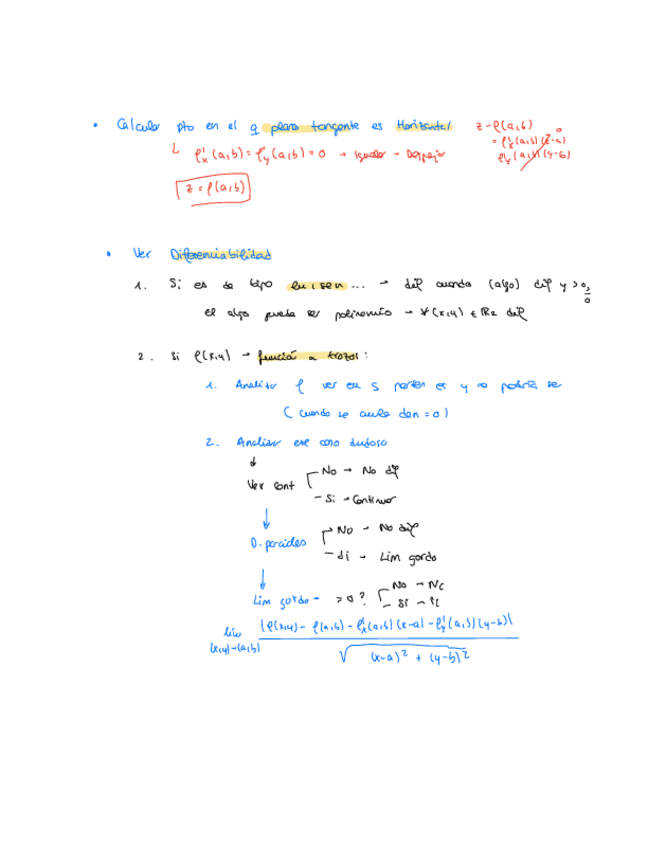 • Calcular pto en el q plano tangente es Horizontal
z - f(a,b) = f'x(a,b)(x-a)
f'y(a,b)(y-b)
0
↳ f'x(a,b) = f'y(a,b) = 0 → Igualar → Despejar
z = f(a,b)
• Ver Diferenciabilidad
1. Si es de tipo ln, sen ... → dif cuando (algo) dif y > 0,
0
el algo puede ser polinomio → ∀(x,y) ∈ R2 dif
2. Si f(x,y) → función a trozos:
1. Analizar f ver en s partes es y no podría se
(cuando se anula den = 0)
2. Analizar ese caso dudoso
↓
Ver cont
No → No dif
Si → Continuar
↓
D. parciales
No → No dif
Si → Lim gordo
↓
Lim gordo → = 0?
No → NC
Si →
lim (x,y)→(a,b) |f(x,y) - f(a,b) - f'x(a,b)(x-a) - f'y(a,b)(y-b)|
√(x-a)² + (y-b)²